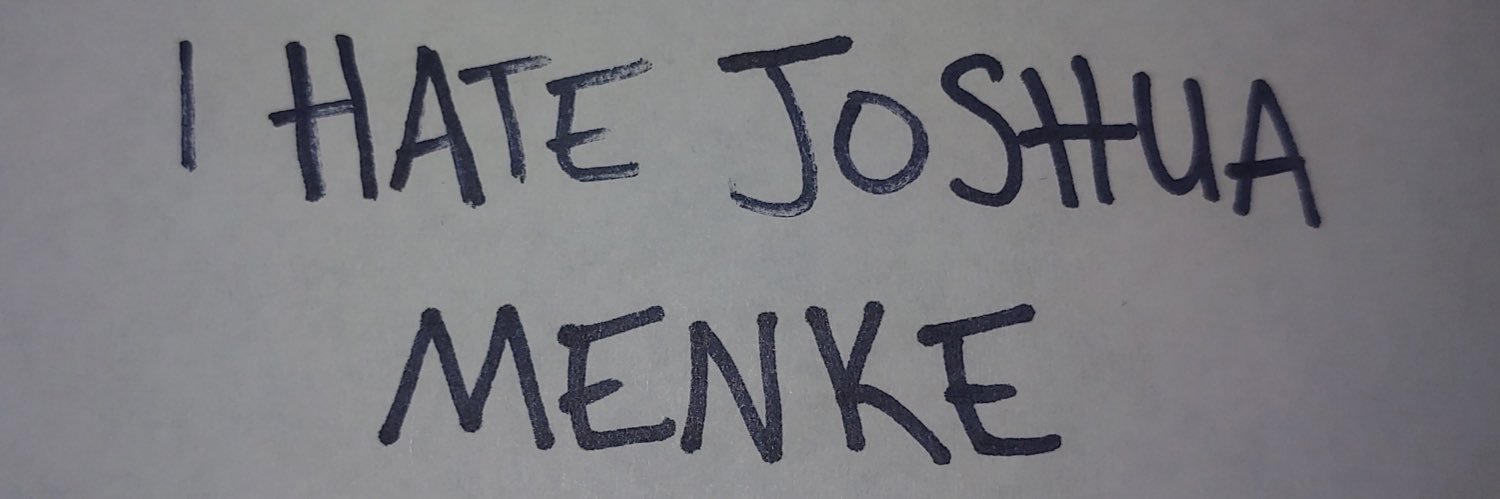 I HATE JOSHUA
MENKE